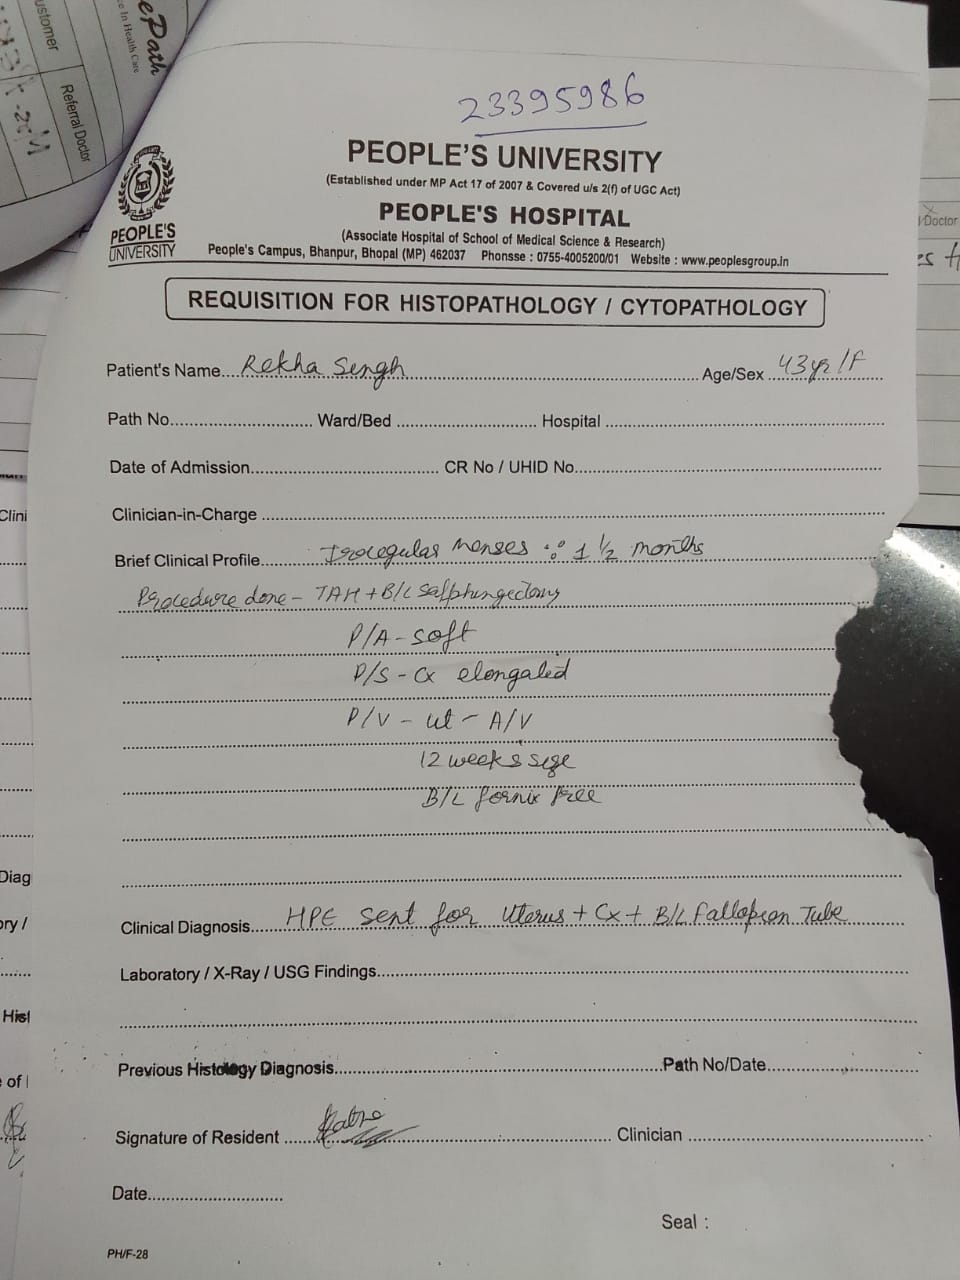 ePath
e In Health Care
ustomer
Referral Doctor
23395986
PEOPLE'S UNIVERSITY
(Established under MP Act 17 of 2007 & Covered u/s 2(f) of UGC Act)
PEOPLE'S HOSPITAL
(Associate Hospital of School of Medical Science & Research)
People's Campus, Bhanpur, Bhopal (MP) 462037 Phonsse : 0755-4005200/01 Website : www.peoplesgroup.in
PEOPLE'S
UNIVERSITY
REQUISITION FOR HISTOPATHOLOGY / CYTOPATHOLOGY
Patient's Name....Rekha Singh.... Age/Sex ....43yr/F
Path No.... Ward/Bed .... Hospital ....
Date of Admission.... CR No / UHID No....
Clinician-in-Charge ....
Brief Clinical Profile.... Irregular menses ∵ 1 ½ months
Procedure done - TAH + B/L Salphingectomy
P/A - soft
P/S - Cx elongated
P/V - ut - A/V
12 weeks size
B/L fornix free
Clinical Diagnosis.... HPE sent for Uterus + Cx + B/L Fallopian Tube
Laboratory / X-Ray / USG Findings....
Previous Histology Diagnosis.... Path No/Date....
Signature of Resident .... Clinician ....
Date....
Seal :
PH/F-28
Doctor
Clini
Diag
ory /
Hist
of